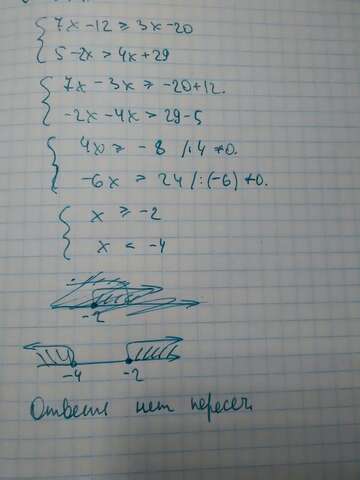 { 7x - 12 ≥ 3x - 20
5 - 2x > 4x + 29
{ 7x - 3x ≥ -20 + 12.
-2x - 4x > 29 - 5
{ 4x ≥ - 8 /:4 ≠0.
-6x > 24 /:(-6) ≠0.
{ x ≥ -2
x < -4
-2
-4 -2
нет пересеч.